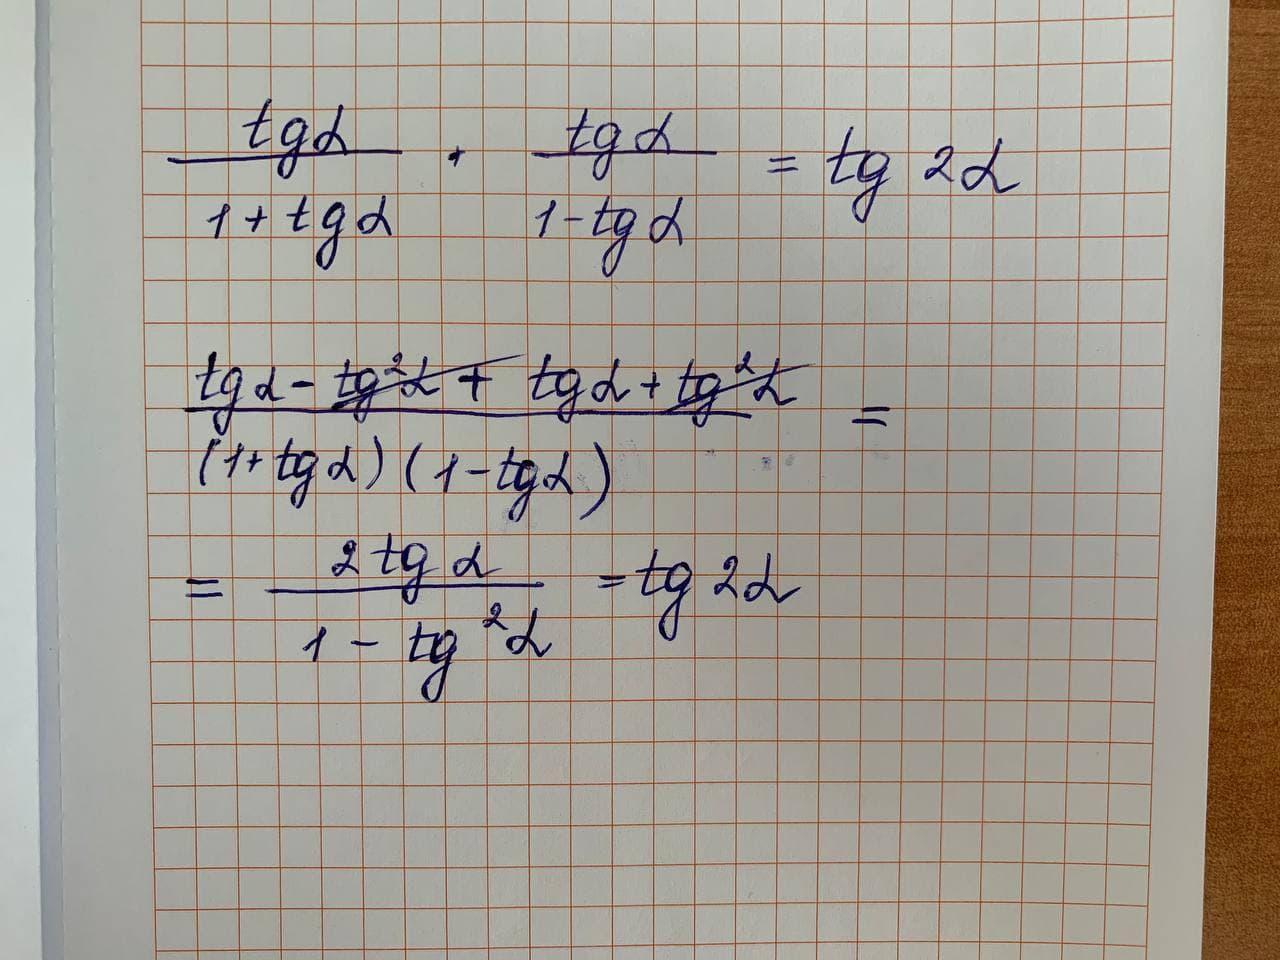 tgα / (1+tgα) + tgα / (1-tgα) = tg 2α
(tgα - tg²α + tgα + tg²α) / ((1+tgα)(1-tgα)) =
= 2tgα / (1 - tg²α) = tg 2α